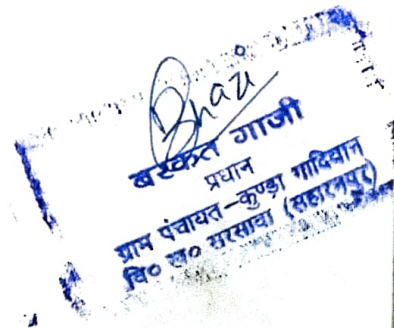 Bhazi
बरकत गाजी
प्रधान
ग्राम पंचायत-कुण्डा गादियान
वि० ख० सरसावा (सहारनपुर)